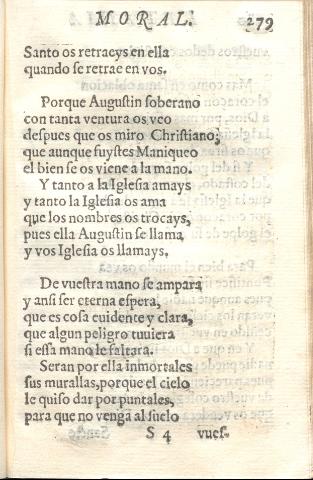 MORAL. 279
Santo os retraeys en ella
quando se retrae en vos.
Porque Augustin soberano
con tanta ventura os veo
despues que os miro Christiano;
que aunque fuystes Maniqueo
el bien se os viene a la mano.
Y tanto a la Iglesia amays
y tanto la Iglesia os ama
que los nombres os trocays,
pues ella Augustin se llama
y vos Iglesia os llamays.
De vuestra mano se ampara
y ansi ser eterna espera,
que es cosa euidente y clara,
que algun peligro tuuiera
si essa mano le faltara.
Seran por ella inmortales
sus murallas, porque el cielo
le quiso dar por puntales,
para que no vengã al suelo
S 4 vues-